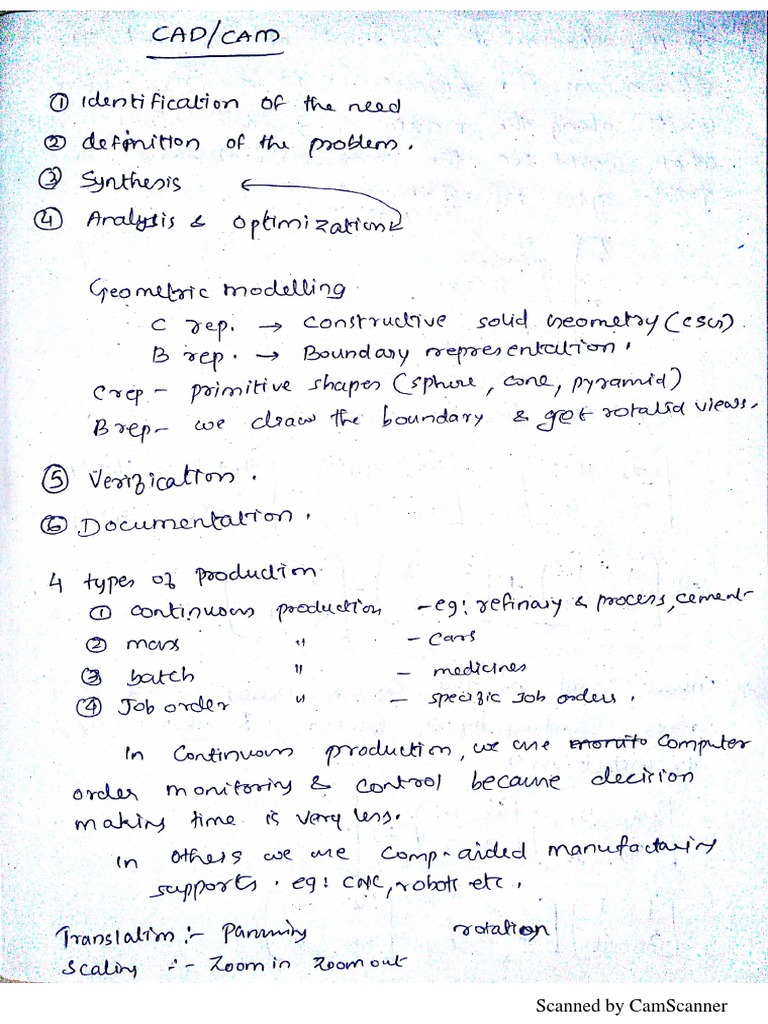 CAD/CAM
① Identification of the need
② definition of the problem.
③ Synthesis
④ Analysis & optimization
Geometric modelling
C rep. → constructive solid Geometry (CSG).
B rep. → Boundary representation.
C rep - primitive shapes (sphere, cone, pyramid)
B rep - we draw the boundary & get rotated views.
⑤ Verification.
⑥ Documentation.
4 types of production
① continuous production - eg: refinary & process, cement
② mass " - cars
③ batch " - medicines
④ Job order " - specific Job orders.
In continuous production, we use computer
order monitoring & control because decision
making time is very less.
In others we use comp-aided manufacturing
supports. eg: CNC, robots etc.
Translation :- Panning rotation
Scaling :- Zoom in Zoom out
Scanned by CamScanner